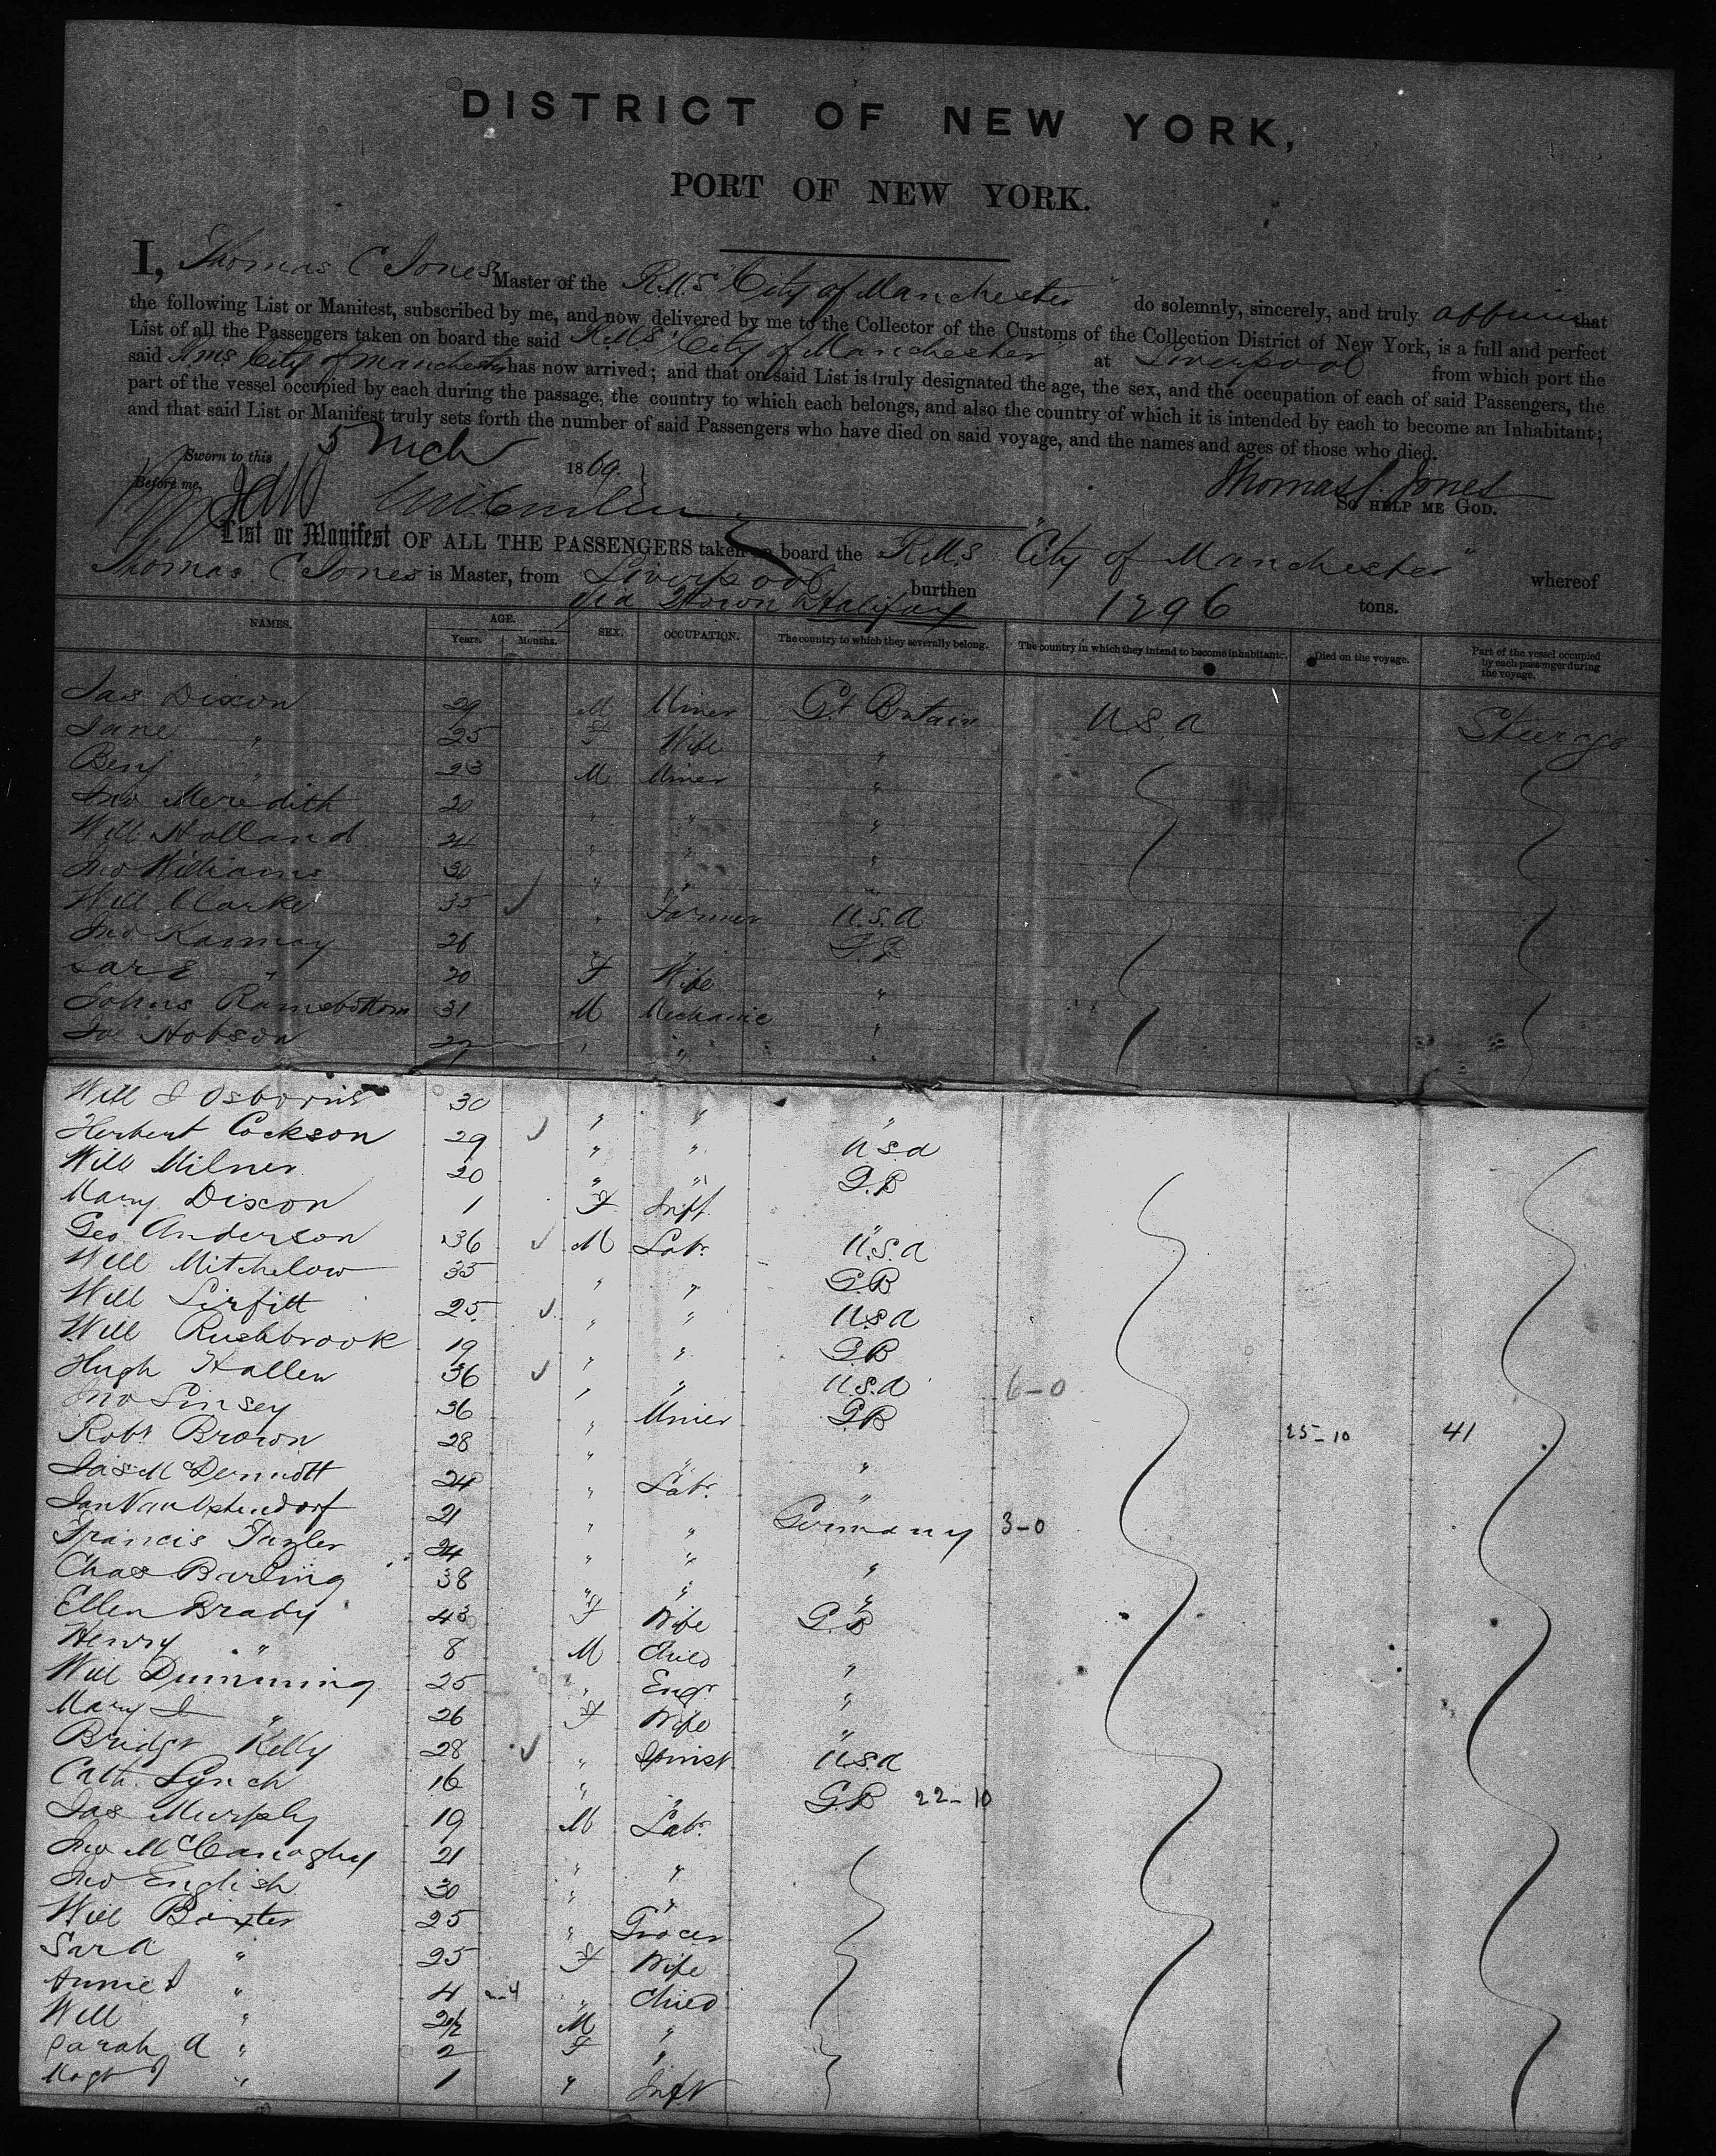 DISTRICT OF NEW YORK,
PORT OF NEW YORK.
I, Thomas C Jones Master of the R.M.S "City of Manchester" do solemnly, sincerely, and truly affirm that
the following List or Manifest, subscribed by me, and now delivered by me to the Collector of the Customs of the Collection District of New York, is a full and perfect
List of all the Passengers taken on board the said R.M.S "City of Manchester" at Liverpool from which port the
said Rms City of Manchester has now arrived; and that on said List is truly designated the age, the sex, and the occupation of each of said Passengers, the
part of the vessel occupied by each during the passage, the country to which each belongs, and also the country of which it is intended by each to become an Inhabitant;
and that said List or Manifest truly sets forth the number of said Passengers who have died on said voyage, and the names and ages of those who died.
Sworn to this 5 Mch 1869.
Before me,
Thomas C Jones
SO HELP ME GOD.
List or Manifest OF ALL THE PASSENGERS taken on board the R.M.S. "City of Manchester" whereof
Thomas C Jones is Master, from Liverpool burthen 1296 tons.
via Qtown & Halifax
NAMES. AGE. Years. Months. SEX. OCCUPATION. The country to which they severally belong. The country in which they intend to become inhabitants. Died on the voyage. Part of the vessel occupied by each passenger during the voyage.
Jas Dixon 29 M Miner Gt Britain U.S.A Steerage
Jane " 25 F Wife "
Benj " 23 M Miner "
Jno Meredith 20 " " "
Will Holland 24 " " "
Jno Williams 30 " " "
Will Clarke 35 " Farmer U.S.A
Jno Rannay 26 " " G.B
Sar E " 20 F Wife "
Johns Ramsbottom 31 M Mechanic "
Joe Hobson 22 " " "
Will J Osborne 30 " " "
Herbert Cockson 29 " " U.S.A
Will Milner 20 " " G.B
Mary Dixon 1 F Inft "
Geo Anderson 36 M Labr U.S.A
Will Mitchelow 35 " " G.B
Will Sirfitt 25 " " U.S.A
Will Rushbrook 19 " " G.B
Hugh Hallen 36 " " U.S.A 6-0
Jno Linsey 26 " Miner G.B
Robt Brown 28 " " " 25-10 41
Jas McDermott 24 " Labr "
Jan Van Ostendorf 21 " " Germany 3-0
Francis Tayler 24 " " "
Chas Barling 38 " " "
Ellen Brady 43 F Wife G.B
Henry " 8 M Child "
Will Dumming 25 " Engr "
Mary J " 26 F Wife "
Bridgt Kelly 28 " Spinst U.S.A
Cath. Lynch 16 " " G.B 22-10
Jas Murphy 19 M Labr
Jno McConaghy 21 " "
Jno English 30 " "
Will Baxter 25 " Grocer
Sara " 25 F Wife
Annie J " 4 " Child
Will " 2½ M "
Sarah A " 2 F "
Magt J " 1 " Inft